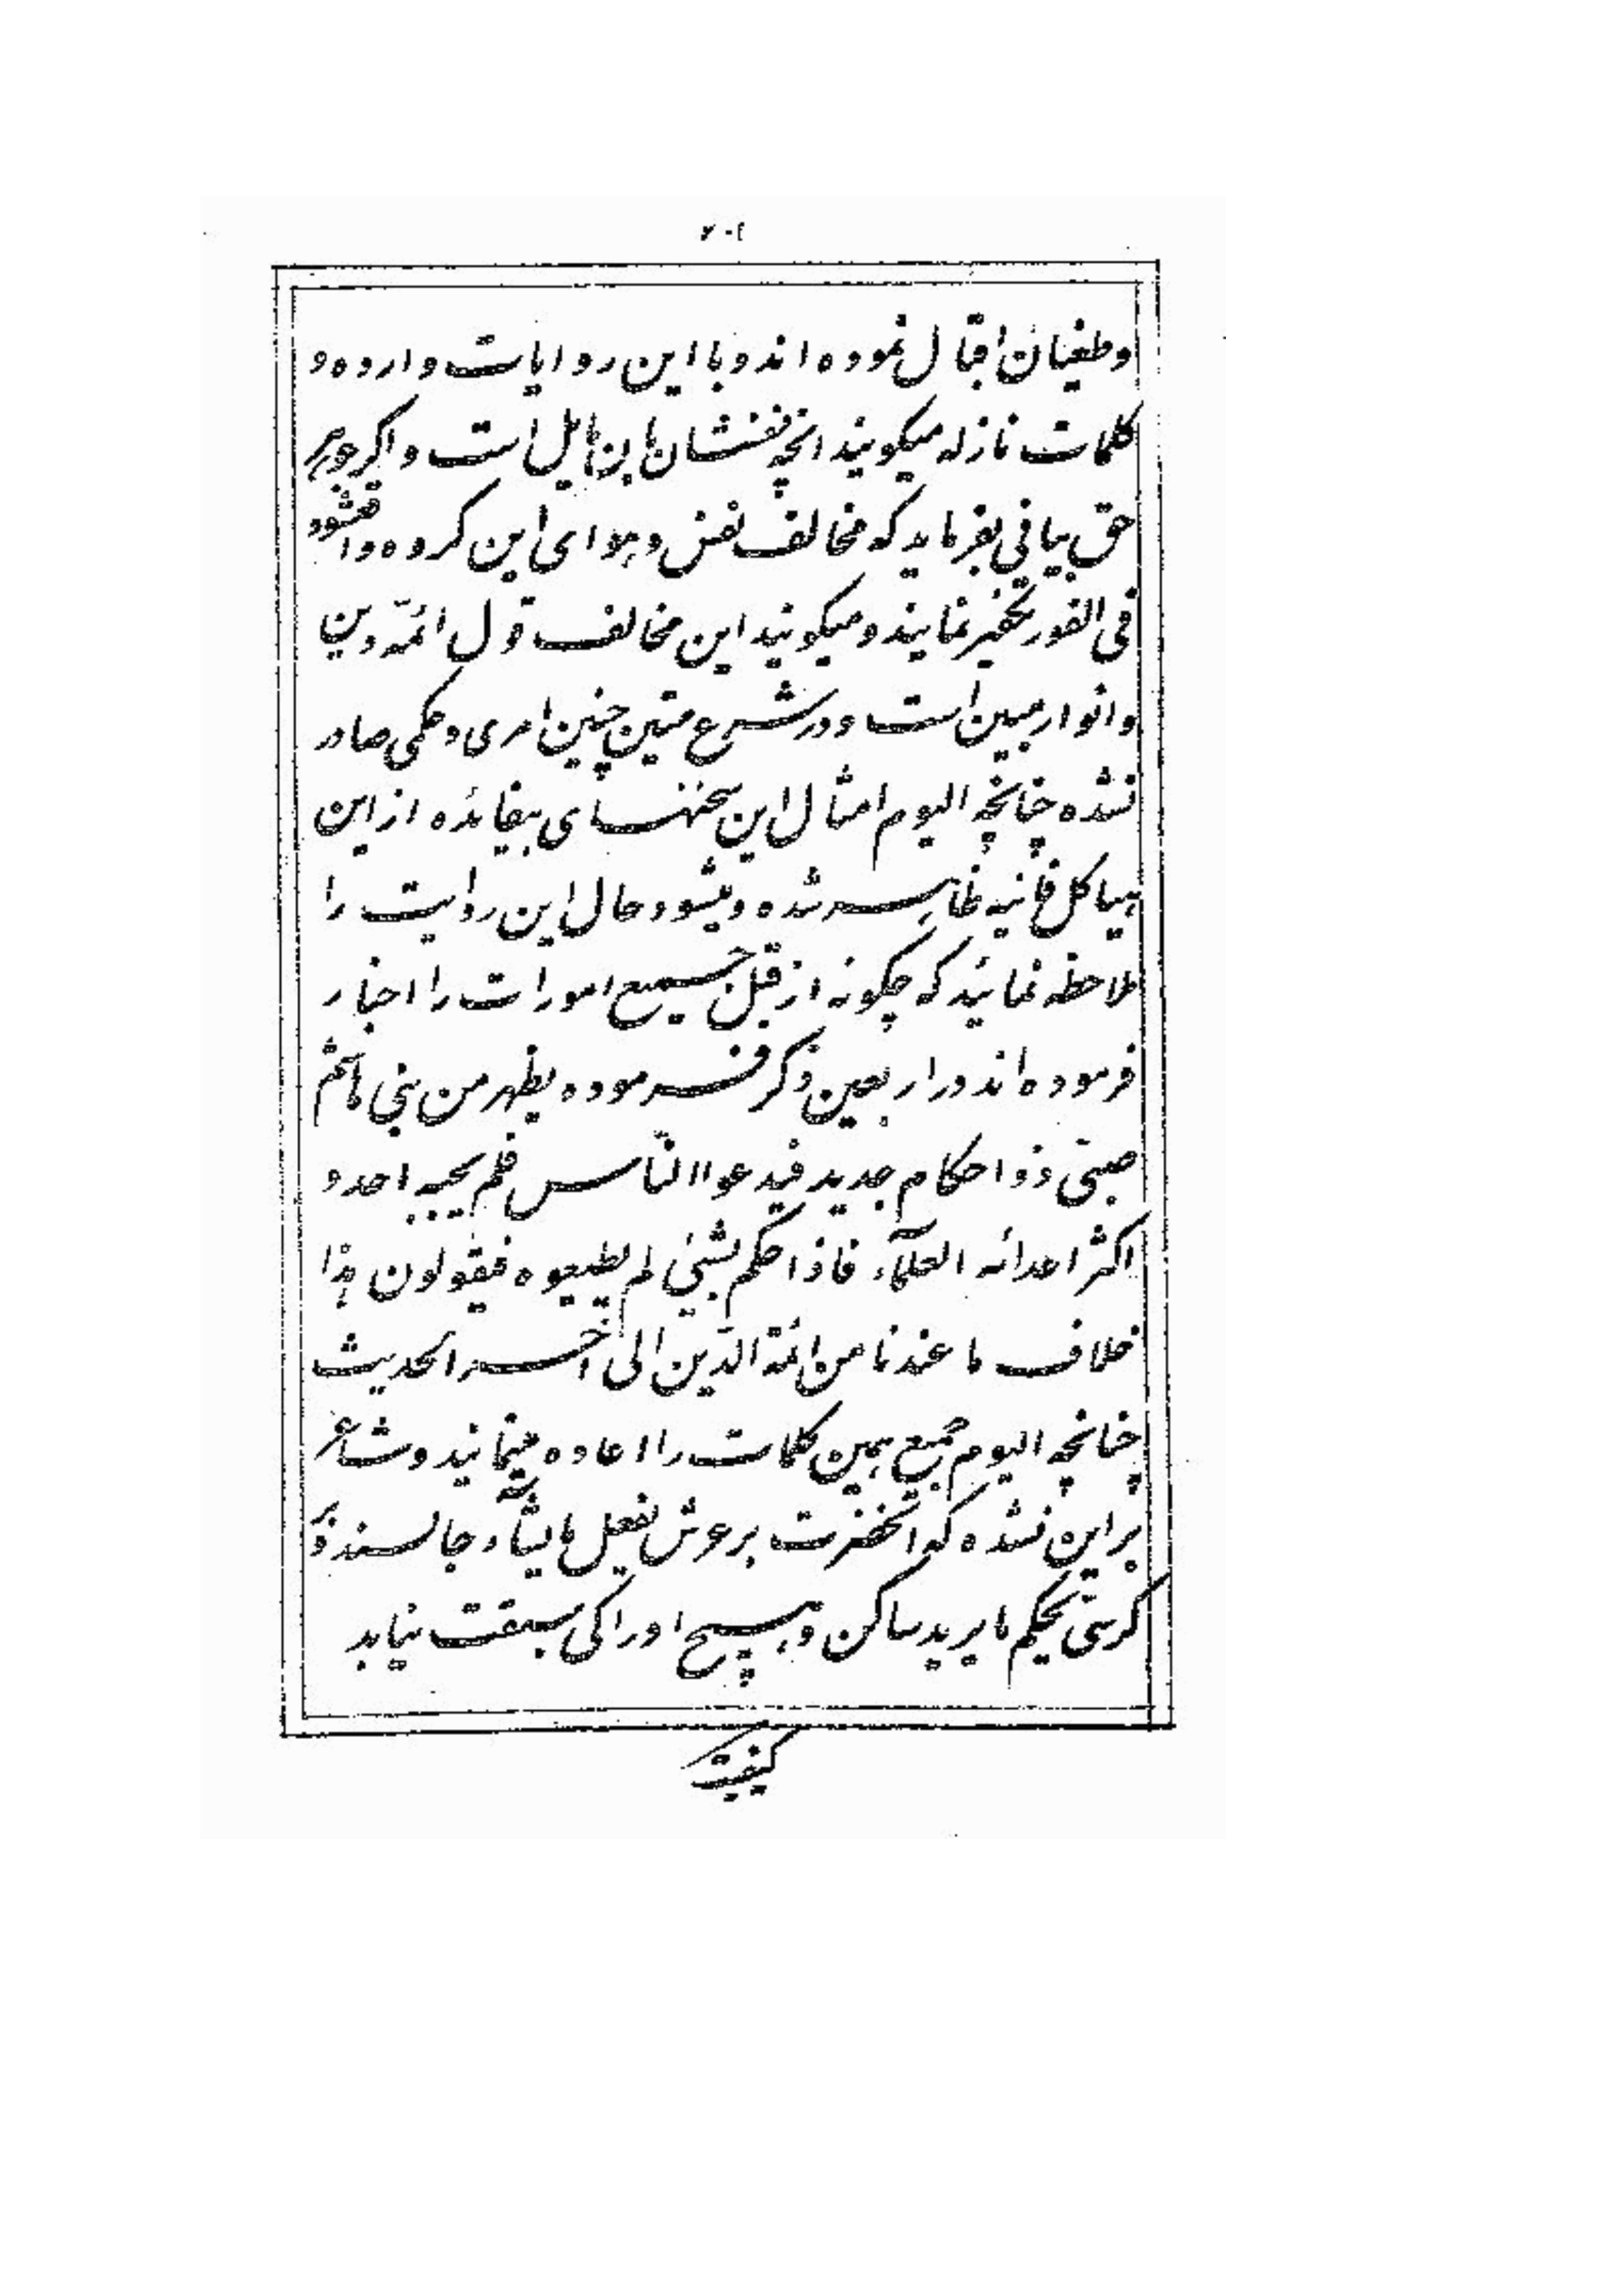 ۲۰۴
و طغیان اقبال نموده اند و با این روایات وارده و
کلمات نازله میکویند انچه نفسشان بان مایل است و اکر جوهر
حق بیانی بفرماید که مخالف نفس و هوای این کروه واقع شود
فی الفور تکفیر نمایند و میکویند این مخالف قول ائمّه دین
و انوار مبین است و در شرع متین چنین امری و حکمی صادر
نشده چنانچه الیوم امثال این سخنهای بیفائده از این
هیاکل فانیه ظاهر شده و میشود حال این روایت را
ملاحظه نمائید که چکونه از قبل جمیع امورات را اخبار
فرموده اند در اربعین ذکر فرموده یظهر من بنی هاشم
صبیّ ذو احکام جدید فیدعوا النّاس فلم یجبه احد و
اکثر اعدائه العلمآء فاذا حکم بشیئ لم یطیعوه فیقولون هذا
خلاف ما عندنا من ائمّة الدّین الی آخر الحدیث
چنانچه الیوم جمیع همین کلمات را اعاده مینمایند و شاعر
بر این نشده که انحضرت بر عرش یفعل ما یشآء جالسند و بر
کرسیّ یحکم ما یرید ساکن و هیچ ادراکی سبقت نیابد
کیفیت